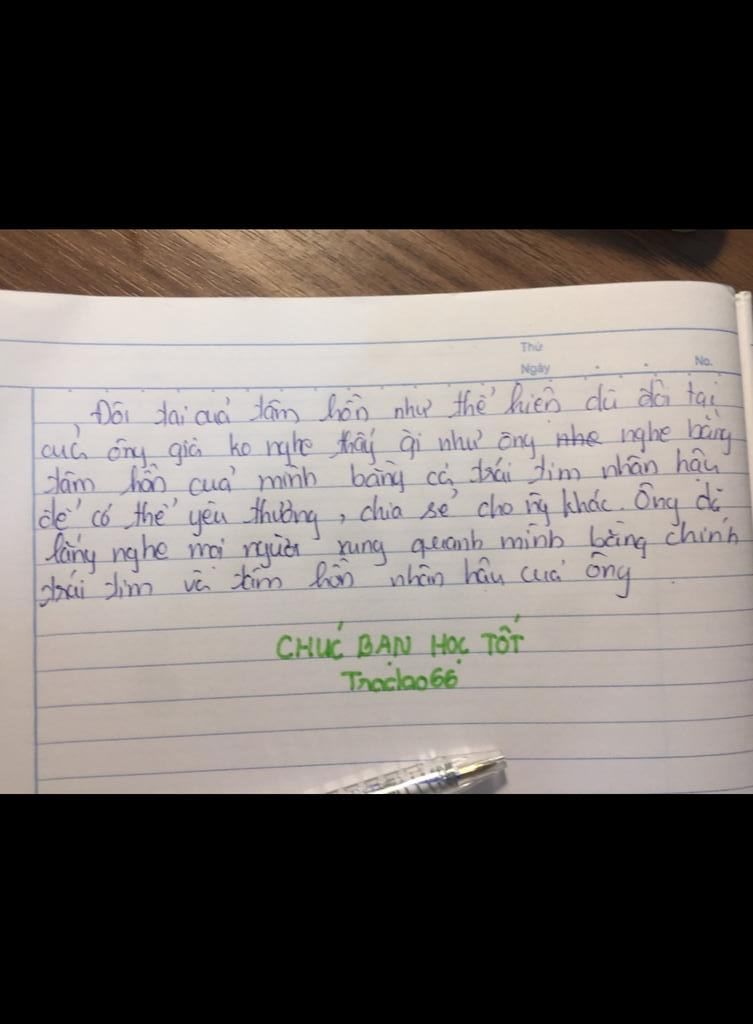 Thứ
Ngày No.
Đôi tai của tâm hồn như thể hiện dù đôi tai
của ông già ko nghe thấy gì như ông nhe nghe bằng
tâm hồn của mình bằng cả trái tim nhân hậu
để có thể yêu thương, chia sẻ cho ng khác. Ông đã
lắng nghe mọi người xung quanh mình bằng chính
trái tim và tâm hồn nhân hậu của ông
CHÚC BẠN HỌC TỐT